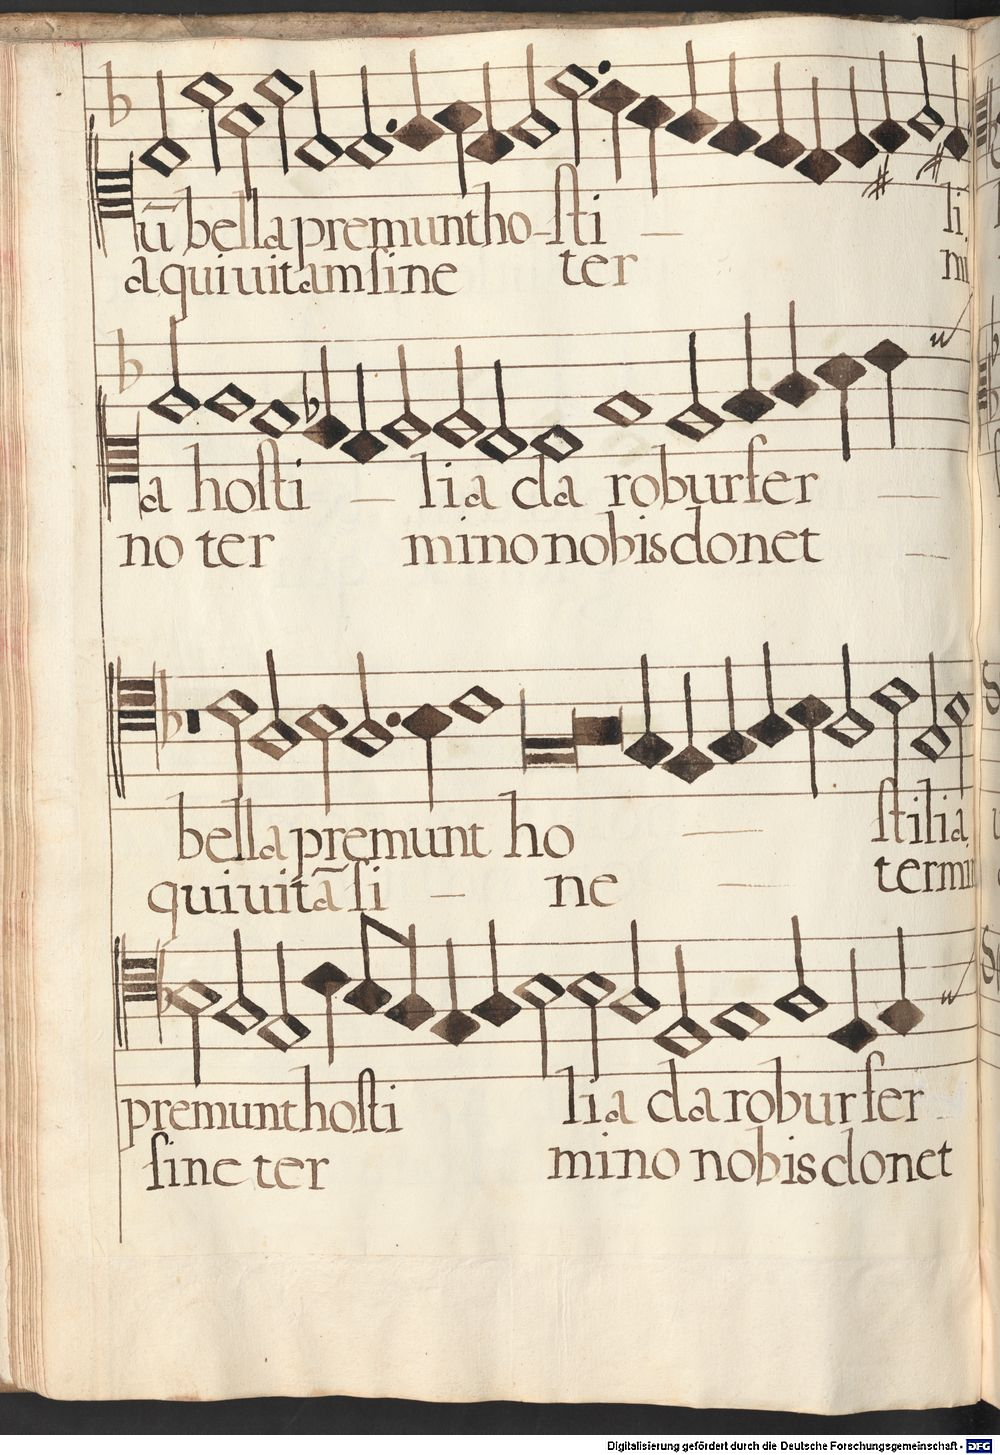 ū bella premunt ho - sti - li
a qui uitam sine ter mi
a hosti - lia da robur fer -
no ter mino nobis donet -
bella premunt ho - stilia
qui uitā si - ne - termi
premunt hosti lia da robur fer -
sine ter mino nobis donet
Digitalisierung gefördert durch die Deutsche Forschungsgemeinschaft - DFG